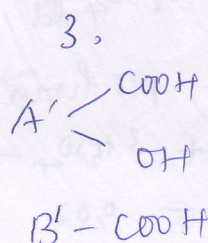 3,
COOH
A'
OH
B' - COOH